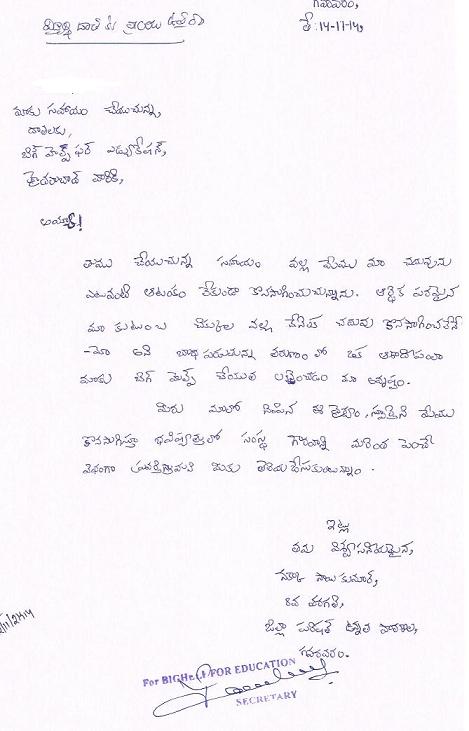 గవరవరం,
తే: 14-11-14,
మాకు సహాయం చేయుచున్న,
దాతలకు,
బిగ్ హెల్ప్ ఫర్ ఎడ్యుకేషన్,
హైదరాబాద్ వారికి,
అయ్యా!
తాము చేయుచున్న సహాయం వల్ల మేము మా చదువును
ఎటువంటి ఆటంకం లేకుండా కొనసాగించుచున్నాను. ఆర్థిక పరమైన
మా కుటుంబ చిక్కుల వల్ల చదువు కొనసాగించలేనే
-మో అని బాధ పడుచున్న తరుణం లో ఒక
మాకు బిగ్ హెల్ప్ చేయుత లభించడం మా అదృష్టం.
మీరు మాలో నింపిన ఈ ధైర్యం, స్ఫూర్తిని మేము
కొనసాగిస్తూ భవిష్యత్తులో సంస్థ గౌరవాన్ని మరింత పెంచే
విధంగా మీకు తెలియజేసుకుంటున్నాం.
ఇట్లు
తమ విశ్వాసనీయమైన,
సాయి కుమార్,
తరగతి,
జిల్లా పరిషత్ ఉన్నత పాఠశాల,
గవరవరం.
For BIGHELP FOR EDUCATION
SECRETARY